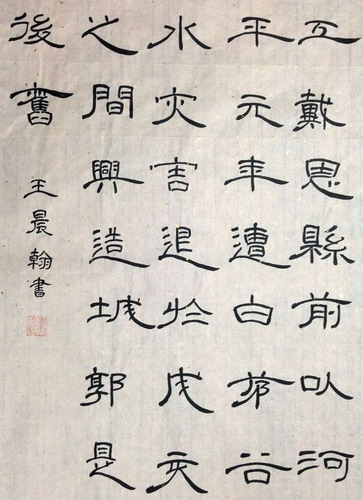 工戴恩縣前以河
平元年遭白茅谷
水灾害退於戌亥
之間興造城郭是
後舊
王晨翰書